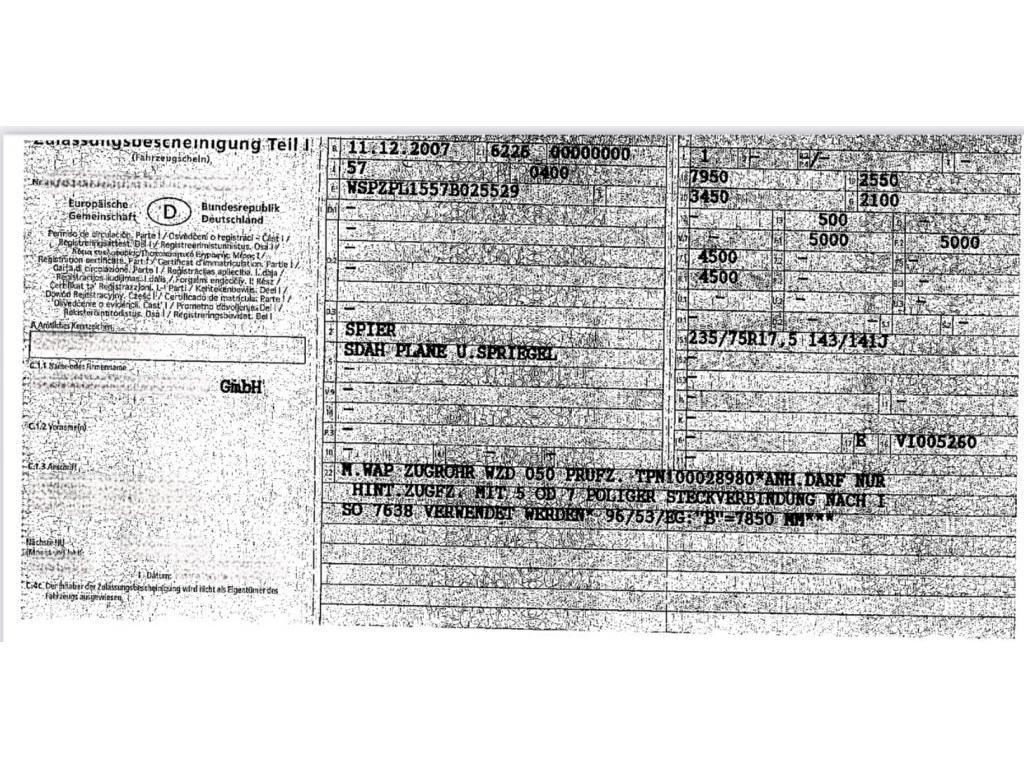 Zulassungsbescheinigung Teil I
(Fahrzeugschein)
Nr.
Europäische Gemeinschaft
D
Bundesrepublik Deutschland
Permiso de circulación. Parte I / Osvědčení o registraci - Část I /
Registreringsattest. Del I / Registreerimistunnistus. Osa I /
Registration certificate. Part I / Certificat d'immatriculation. Partie I /
Carta di circolazione. Parte I / Reģistrācijas apliecība. I. daļa /
Registracijos liudijimas. I dalis / Forgalmi engedély. I. Rész /
Ċertifikat ta' Reġistrazzjoni. L-I Parti / Kentekenbewijs. Deel I /
Dowód Rejestracyjny. Część I / Certificado de matrícula. Parte I /
Osvedčenie o evidencii. Časť I / Prometno dovoljenje. Del I /
Rekisteröintitodistus. Osa I / Registreringsbeviset. Del I
A Amtliches Kennzeichen
C.1.1 Name oder Firmenname
GmbH
C.1.2 Vorname(n)
C.1.3 Anschrift
Nächste HU
Datum:
C.4c Der Inhaber der Zulassungsbescheinigung wird nicht als Eigentümer des
Fahrzeugs ausgewiesen.
11.12.2007 6226 00000000
57 0400
WSPZPL1557B025529
SPIER
SDAH PLANE U.SPRIEGEL
1 - -/- -
7950 2550
3450 2100
- 500 -
- 5000 5000
4500 -
4500 -
235/75R17,5 143/141J
K VI005260
M.WAP ZUGROHR WZD 050 PRUFZ. TPN100028980*ANH.DARF NUR
HINT.ZUGFZ. MIT 5 OD 7 POLIGER STECKVERBINDUNG NACH I
SO 7638 VERWENDET WERDEN* 96/53/EG:"B"=7850 MM***